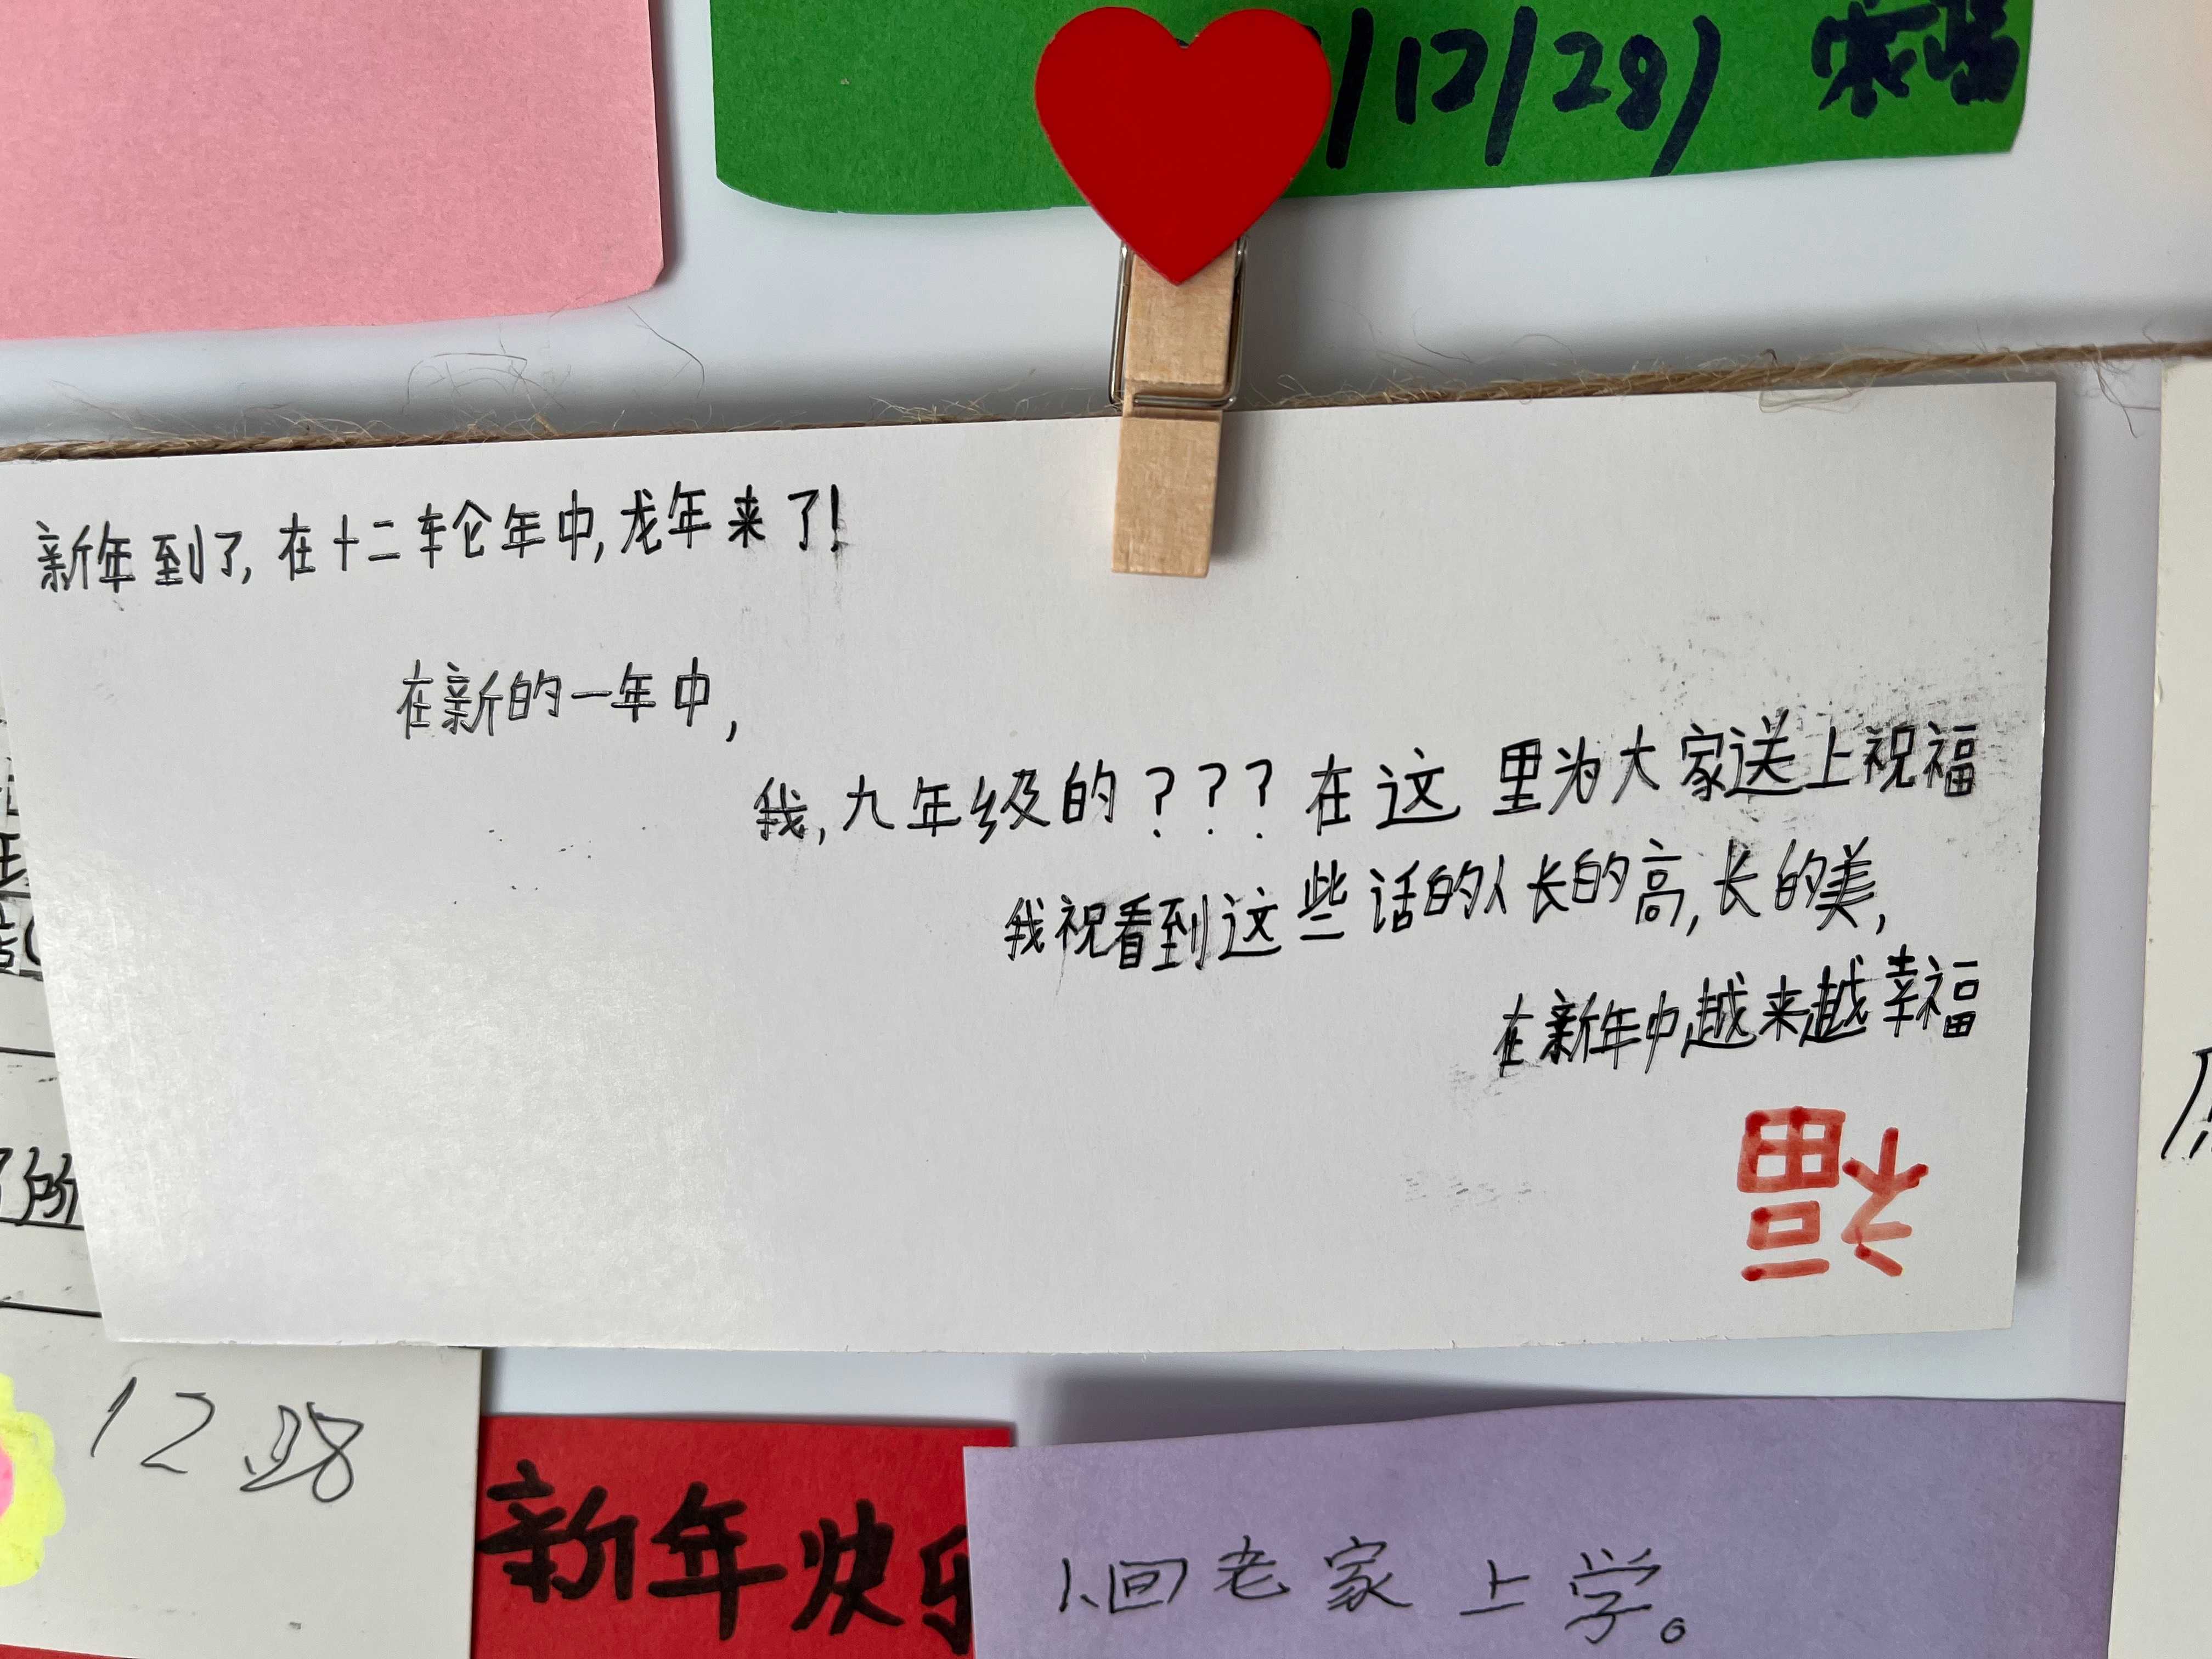 /12/28)
新年到了,在十二轮年中,龙年来了!
在新的一年中,
我,九年级的???在这里为大家送上祝福
我祝看到这些话的人长的高,长的美,
在新年中越来越幸福
福
12.28
新年快乐
1.回老家上学。